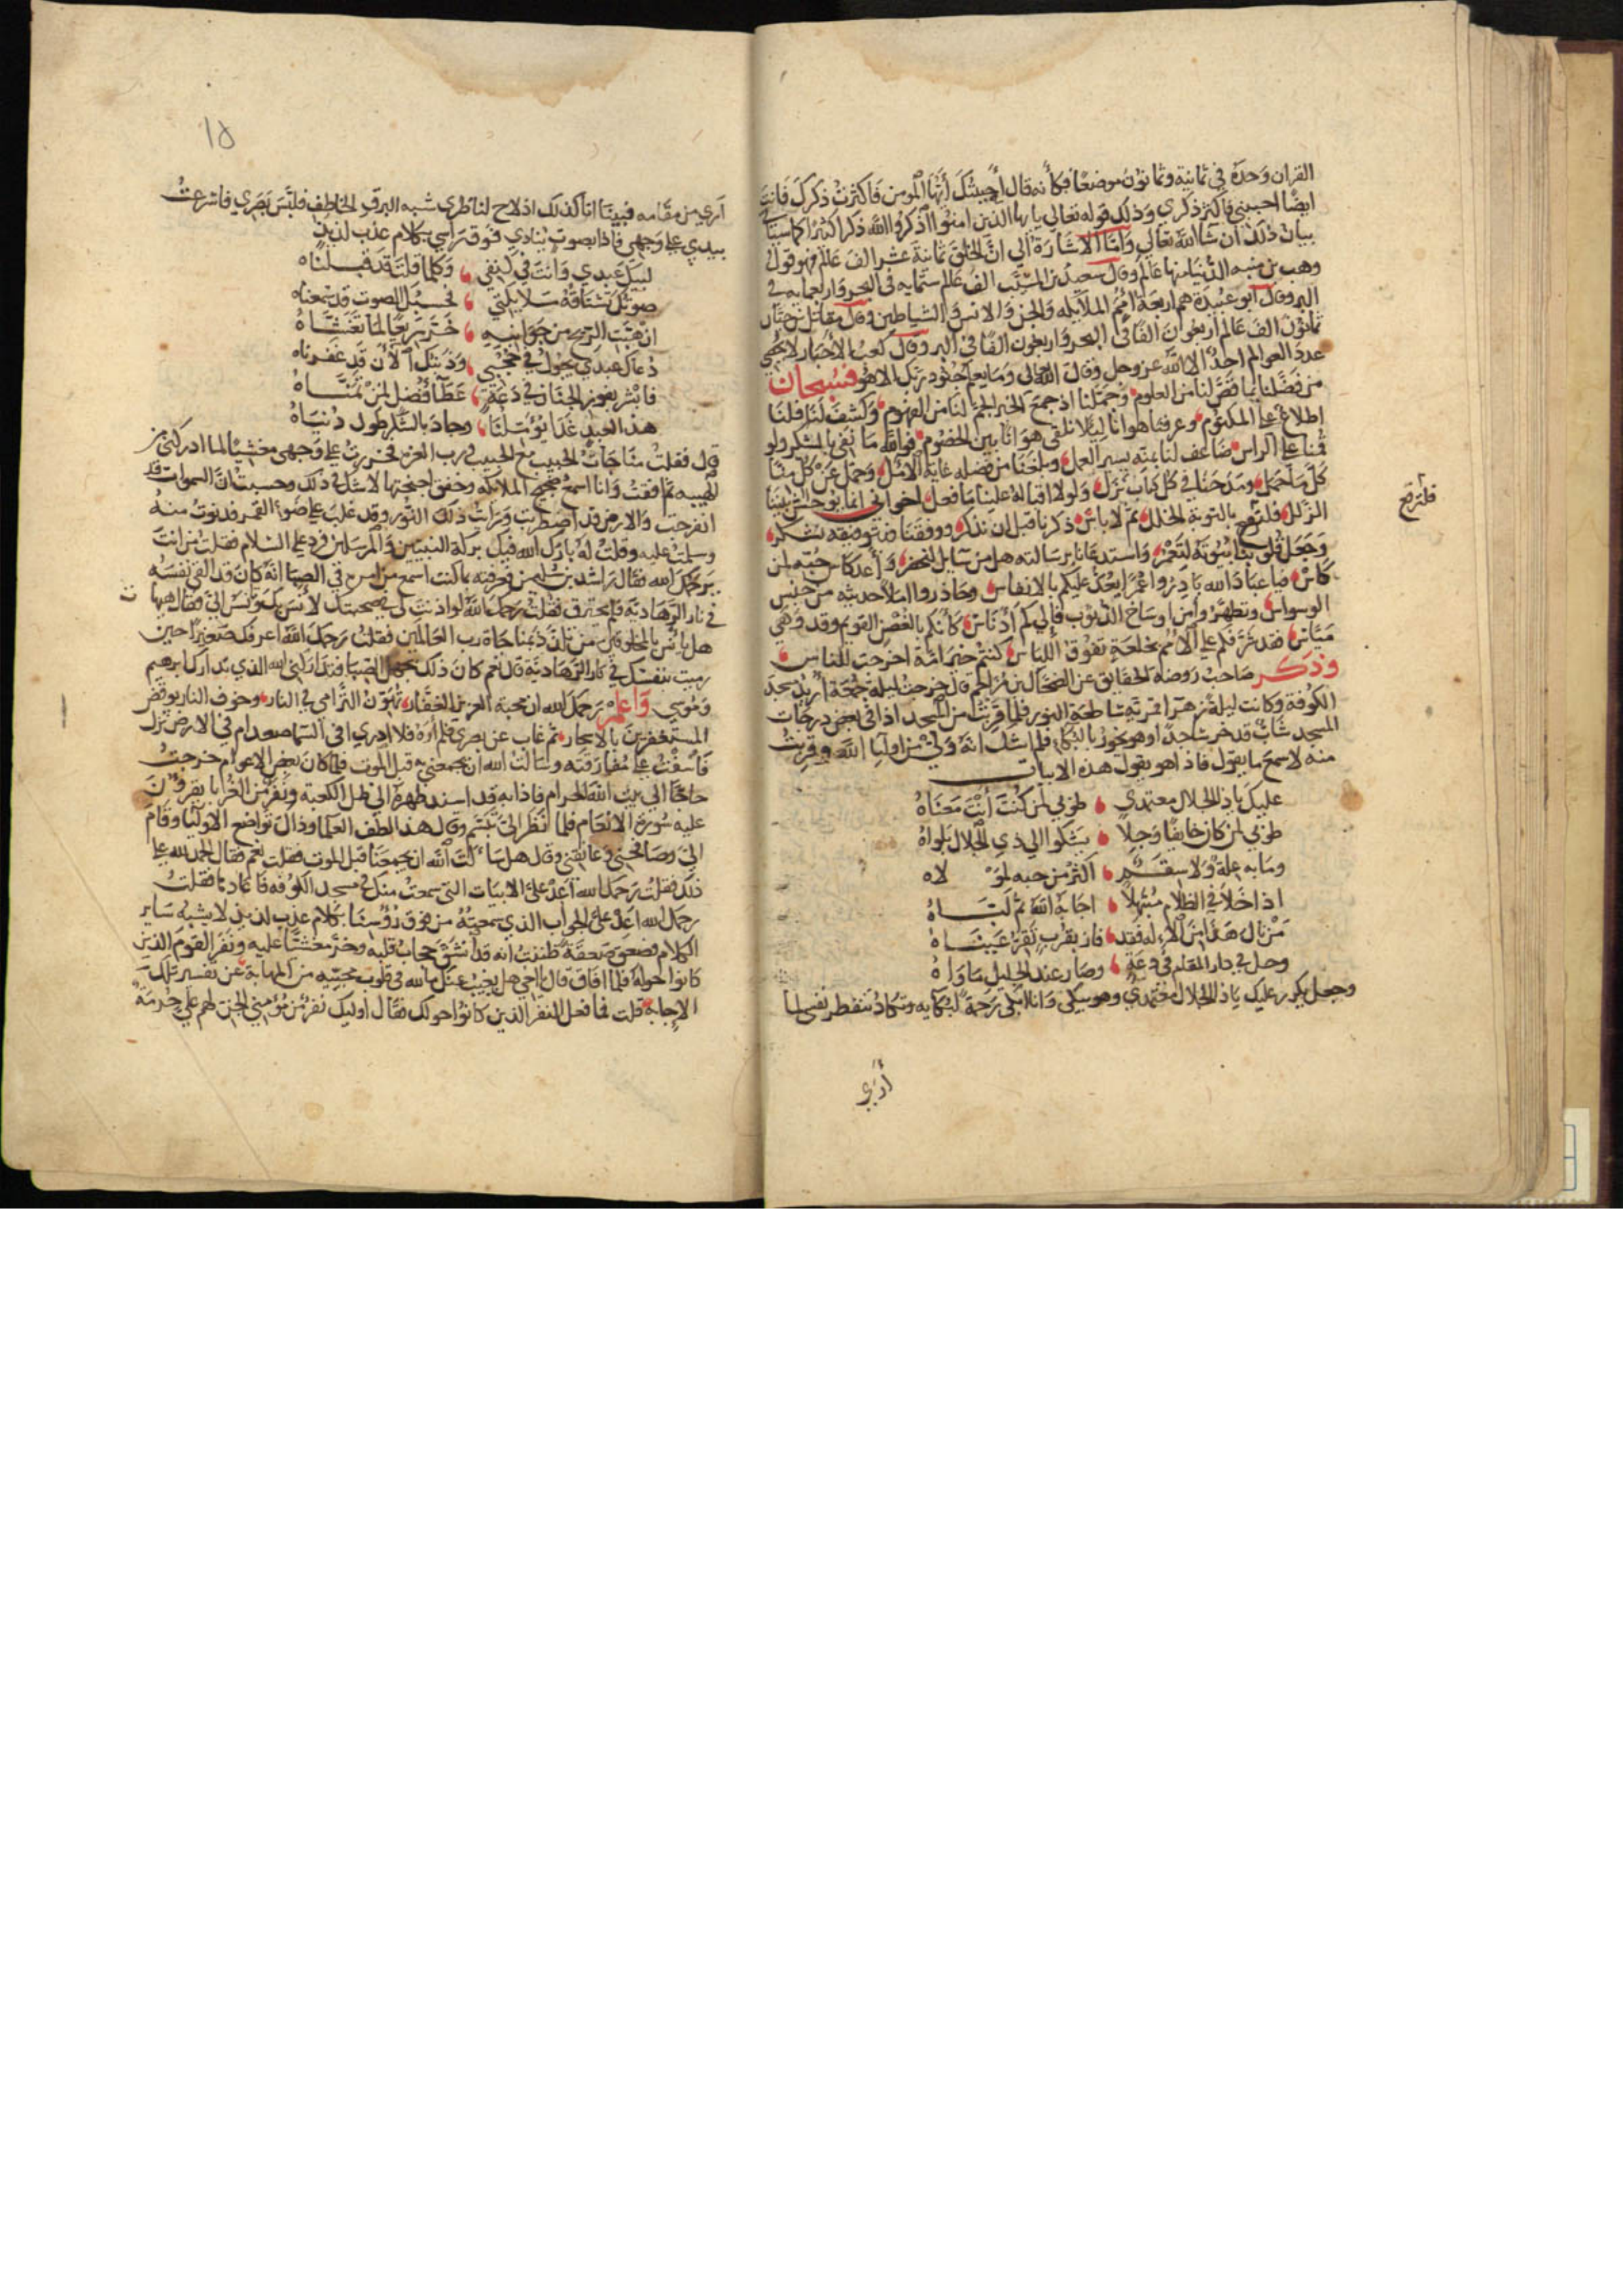 القران وحده في ثمانية وثمانون موضعا فكأنه قال أجبتك أيها المومن فاكثرت ذكرك فانت
ايضا احببني فاكثر ذكري وذلك قوله تعالى يايها الذين امنوا اذكروا الله ذكرا كثيرا كما سياتي
بيان ذلك ان شا الله تعالي وأما الاشارة الى ان الخلق ثمانية عشر الف عالم فهو قول
وهب بن منبه الدنيا منها عالم وقال سعيد بن المسيب الف عالم ستمايه في البحر واربعمايه في
البر وقال ابو عبيدة هم اربعة امم الملايكه والجن والانس والشياطين وقال مقاتل بن حيان
ثمانون الف عالم اربعون الفا في البحر واربعون الفا في البر وقال كعب الاحبار لا يحصي
عدد العوالم احدا الا الله عز وجل وقال الله تعالى وما يعلم جنود ربك الا هو فسبحان
من فضلنا بما قص لنا من العلوم وحملنا اذ جمع الخير الجم لنا من الفهوم وكشف لنا فلنا
اطلاع على المكتوم وعرفنا هوانا ليلا نلقى هوانا بين الخصوم فوالله ما نفي بالشكر ولو
قمنا على الراس ضاعف لنا بمنه يسير العمل وبلغنا من فضله غاية الامل وحمل عن كل منا
كل ما حمل ومدحنا في كل كتاب نزل ولولا اقباله علينا ما فعل اخواني انما نوحش بيننا
الزلل فلنرقع بالتوبة الخلل ثم لا باس ذكرنا قبل ان نذكره ووفقنا فبتوفيقه نشكر
وجعل قلوبنا بيوته لتعمر واستدعانا برسالته هل من سايل فيغفر وأعد كاس حبه لمن
كاس فيا عباد الله بادروا عمرا يعد عليكم بالانفاس وحاذروا املا حديثه من جنس
الوسواس وتطهروا من اوساخ الذنوب فإلى كم أدناس كأنكم بالغصن القويم وقد وهي
مياس فقد شرفكم على الامم بخلعة تفوق اللباس كنتم خير امة اخرجت للناس
وذكر صاحب روضه الحقايق عن الضحاك بن مزاحم قال خرجت ليلة جمعة أريد مسجد
الكوفة وكانت ليلة زهرا قمرية ساطعة النور فلما قربت من المسجد اذا في بعض درجات
المسجد شاب قد خر ساجدا وهو يخور بالبكا فلم اشك انه ولي من اوليا الله وقربت
منه لاسمع ما يقول فاذا هو يقول هذه الابيات
عليك ياذا الجلال معتمدي طوبى لمن كنت أنت معناه
طوبى لمن كان خايفا وجلا يشكوا الي ذي الجلال بلواه
وما به علة ولا سقم اكثر من حبه لمولاه
اذا خلا في الظلام مبتهلا اجابه الله ثم لباه
من نال هذا من الاله فقد فاز بقرب تقر عيناه
وحل في دار المقام في دعة وصار عند الجليل ماواه
وجعل يكرر عليك ياذا الجلال معتمدي وهو يبكي وانا ابكي رحمة لبكايه وتكاد تنفطر نفسي لما
أرى
فلنرقع
١٥
أرى من مقامه فبينا انا كذلك اذ لاح لناظري شبه البرق الخاطف فلبس بصري فاسرعت
بيدي على وجهي فاذا بصوت ينادي فوق راسي بكلام عذب لذيذ
لبيك عبدي وانت في كنفي وكلما قلت قد قبلناه
صوتك تشتاقه ملايكتي فحسبك الصوت قد سمعناه
ان هبت الريح من جوانبه خر صريعا لما تغشاه
دعاك عبدي يجول في حجبي وذنبك الآن قد غفرناه
فابشر بفوز الجنان في دعة عطا فضل لمن تمناه
هذا العبد غدا يؤمن لنا وجاد بالشكر طول دنياه
قال فقلت مناجات الحبيب مع الحبيب ورب العزه فخررت على وجهي مغشيا لما ادركني من
الهيبه ثم افقت وانا اسمع ضجيج الملايكه وخفق اجنحتها لا شك في ذلك وحسبت ان السموات قد
انفرجت والارض قد اضطربت ورأيت ذلك النور وقد غلب على ضوء القمر فدنوت منه
وسلمت عليه وقلت له بارك الله فيك بركة النبيين والمرسلين فرد علي السلام فقلت من انت
يرحمك الله فقال راشد بن سليمن فعرفته بما كنت اسمع من امره في الصبا انه كان قد القى نفسه
في نار الرهادية فلم يحترق فقلت رحمك الله لو اذنت لي في صحبتك لآنس بك وتأنس الي فقال هيهات
هل يانس بالمخلوقين من تلذذ بمناجاة رب العالمين فقلت رحمك الله اعرفك صغيرا حين
رميت بنفسك في نار الرهادية قال نعم كان ذلك بجهل الصبا فتداركني الله الذي تدارك ابرهيم
وموسى واعلم رحمك الله ان محبة العزيز الغفار تهون الترامي في النار وخوف النار يوقض
المستغفرين بالاسحار ثم غاب عن بصري فلم أره فلا ادري افي السما صعد ام في الارض نزل
فأسفت على مفارقته وسالت الله ان يجمعني به قبل الموت فلما كان بعض الاعوام خرجت
حاجا الي بيت الله الحرام فاذا به قد اسند ظهره الى ظل الكعبة ونفر من القرا يقرؤن
عليه سورة الانعام فلما انظر الي تبسم وقال هذا لطف العلما وذاك تواضع الاوليا وقام
الي وصافحني وعانقني وقال هل سالت الله ان يجمعنا قبل الموت فقلت نعم فقال الحمد لله على
ذلك فقلت رحمك الله أعد علي الابيات التي سمعت منك في مسجد الكوفه فاعادها فقلت
رحمك الله اعد علي الجواب الذي سمعته من فوق رؤسنا بكلام عذب لذيذ لا يشبه ساير
الكلام فصعق صعقة ظننت انه قد انشق حجاب قلبه وخر مغشيا عليه ونفر القوم الذين
كانوا حوله فلما افاق قال يااخي هل يغيب عنك ما لله في قلوب محبيه من المهابة عن تفسير تلك
الاجابة قلت فما فعل النفر الذين كانوا حولك فقال اوليك نفر من مؤمني الجن لهم علي حرمة